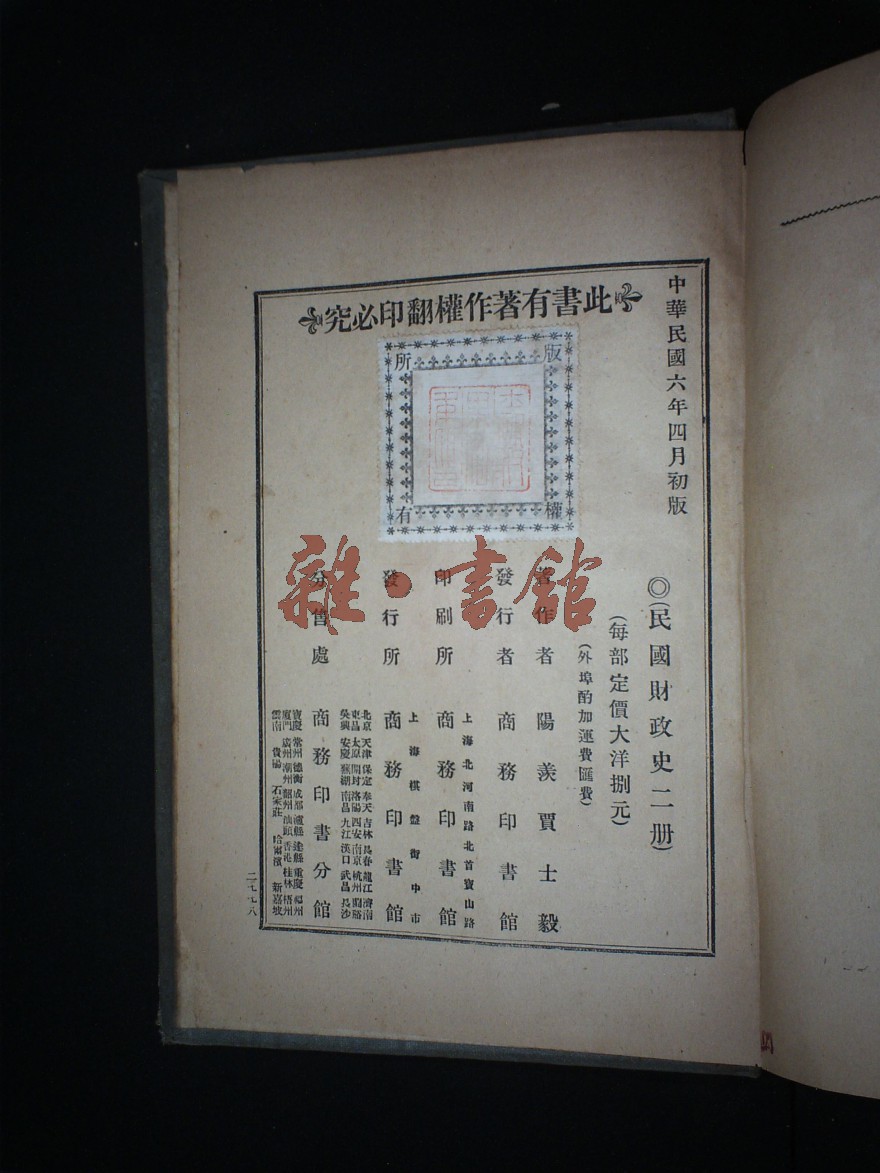 此書有著作權翻印必究
版權所有
中華民國六年四月初版
◎(民國財政史二册)
(每部定價大洋捌元)
(外埠酌加運費匯費)
著作者 陽羨賈士毅
發行者 商務印書館
上海北河南路北首寶山路
印刷所 商務印書館
上海棋盤街中市
發行所 商務印書館
北京 天津 保定 奉天 吉林 長春 龍江 濟南
東昌 太原 開封 洛陽 西安 南京 杭州 蘭谿
吳興 安慶 蕪湖 南昌 九江 漢口 武昌 長沙
分售處 商務印書分館
寶慶 常州 德 衡 成都 瀘縣 達縣 重慶 福州
廈門 廣州 潮州 韶州 汕頭 香港 桂林 梧州
雲南 貴陽 石家莊 哈爾濱 新嘉坡
二七七八
雜·書館